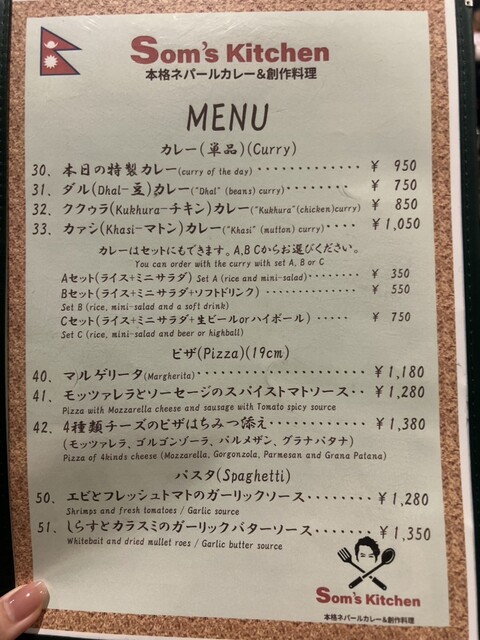 Som's Kitchen
本格ネパールカレー&創作料理
MENU
カレー(単品)(Curry)
30. 本日の特製カレー(curry of the day)・・・・・・・・・・・・・ ¥ 950
31. ダル(Dhal-豆)カレー("Dhal" (beans) curry)・・・・・・・・ ¥ 750
32. ククゥラ(Kukhura-チキン)カレー("Kukhura"(chicken)curry) ¥ 850
33. カァシ(Khasi-マトン)カレー("Khasi" (mutton) curry)・・・・ ¥ 1,050
カレーはセットにもできます。A,B Cからお選びください。
You can order with the curry with set A, B or C
Aセット(ライス+ミニサラダ) Set A (rice and mini-salad)・・・・・・・ ¥ 350
Bセット(ライス+ミニサラダ+ソフトドリンク) ・・・・・・・・・・・・ ¥ 550
Set B (rice, mini-salad and a soft drink)
Cセット(ライス+ミニサラダ+生ビールorハイボール) ・・・・・ ¥ 750
Set C (rice, mini-salad and beer or highball)
ピザ(Pizza)(19cm)
40. マルゲリータ(Margherita)・・・・・・・・・・・・・・・・・・ ¥ 1,180
41. モッツァレラとソーセージのスパイストマトソース・・ ¥ 1,280
Pizza with Mozzarella cheese and sausage with Tomato spicy source
42. 4種類チーズのピザはちみつ添え ・・・・・・・・・・・ ¥ 1,380
(モッツァレラ、ゴルゴンゾーラ、パルメザン、グラナパタナ)
Pizza of 4kinds cheese (Mozzarella, Gorgonzola, Parmesan and Grana Patana)
パスタ(Spaghetti)
50. エビとフレッシュトマトのガーリックソース・・・・・・・ ¥ 1,280
Shrimps and fresh tomatoes / Garlic source
51. しらすとカラスミのガーリックバターソース・・・・・・・ ¥ 1,350
Whitebait and dried mullet roes / Garlic butter source
Som's Kitchen
本格ネパールカレー&創作料理